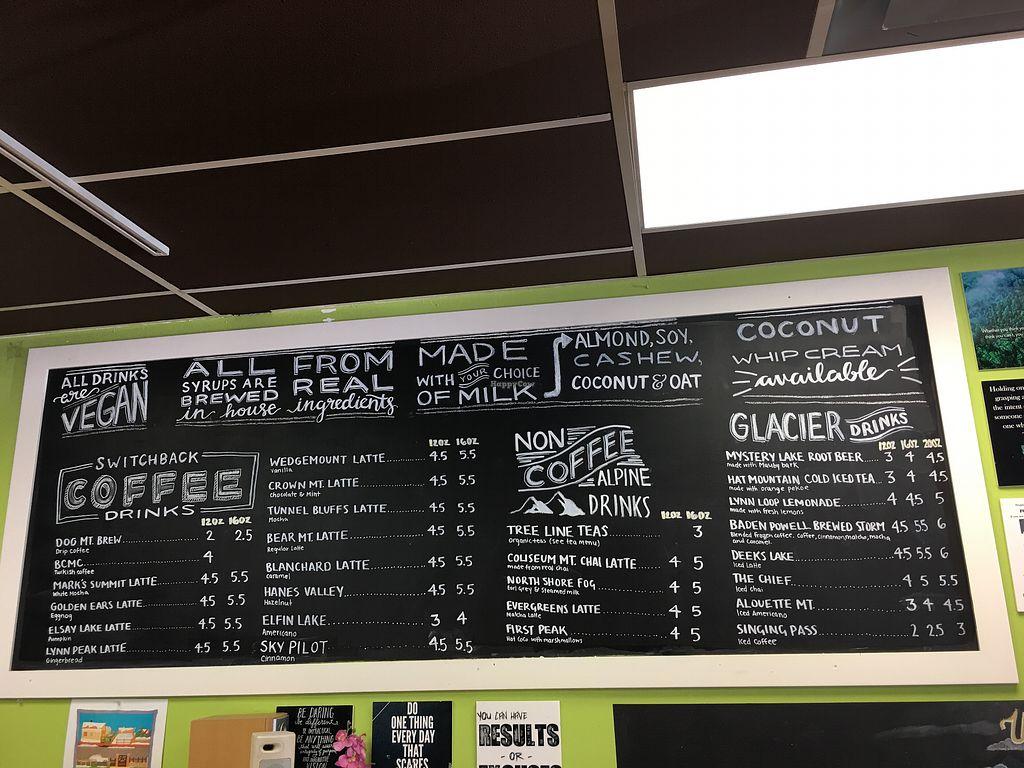 ALL DRINKS
are
VEGAN
ALL FROM
SYRUPS ARE REAL
BREWED
in house ingredients
MADE
WITH YOUR CHOICE
OF MILK
ALMOND, SOY,
CASHEW,
COCONUT & OAT
HappyCow
COCONUT
WHIP CREAM
available
SWITCHBACK
COFFEE
DRINKS
12OZ 16OZ
DOG MT. BREW 2 2.5
Drip coffee
BCMC 4
Turkish coffee
MARK'S SUMMIT LATTE 4.5 5.5
White Mocha
GOLDEN EARS LATTE 4.5 5.5
Eggnog
ELSAY LAKE LATTE 4.5 5.5
Pumpkin
LYNN PEAK LATTE 4.5 5.5
Gingerbread
12OZ 16OZ
WEDGEMOUNT LATTE 4.5 5.5
Vanilla
CROWN MT. LATTE 4.5 5.5
Chocolate & Mint
TUNNEL BLUFFS LATTE 4.5 5.5
Mocha
BEAR MT. LATTE 4.5 5.5
Regular Latte
BLANCHARD LATTE 4.5 5.5
Caramel
HANES VALLEY 4.5 5.5
Hazelnut
ELFIN LAKE 3 4
Americano
SKY PILOT 4.5 5.5
Cinnamon
NON
COFFEE
ALPINE
DRINKS
12OZ 16OZ
TREE LINE TEAS 3
Organic teas (see tea menu)
COLISEUM MT. CHAI LATTE 4 5
made from real chai
NORTH SHORE FOG 4 5
Earl Grey & Steamed milk
EVERGREENS LATTE 4 5
Matcha Latte
FIRST PEAK 4 5
Hot Coco with marshmallows
GLACIER DRINKS
12OZ 16OZ 20OZ
MYSTERY LAKE ROOT BEER 3 4 4.5
made with Mauby bark
HAT MOUNTAIN COLD ICED TEA 3 4 4.5
made with orange pekoe
LYNN LOOP LEMONADE 4 4.5 5
made with fresh lemons
BADEN POWELL BREWED STORM 4.5 5.5 6
Blended frozen coffee. coffee, cinnamon/matcha, mocha
and Caramel
DEEKS LAKE 4.5 5.5 6
Iced Latte
THE CHIEF 4 5 5.5
Iced chai
ALOUETTE MT. 3 4 4.5
Iced Americano
SINGING PASS 2 2.5 3
Iced Coffee
BE DARING
be different,
BE ANYTHING
DO
ONE THING
EVERY DAY
THAT
SCARES
YOU CAN HAVE
RESULTS
- OR -